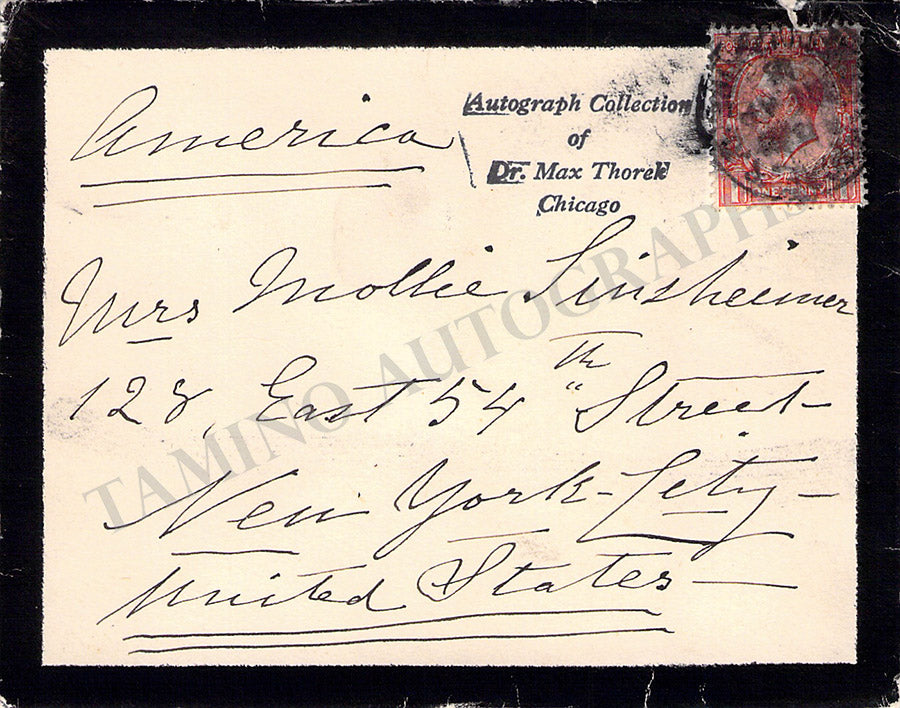 America
Autograph Collection
of
Dr. Max Thorek
Chicago
Mrs Mollie Sinsheimer
128, East 54th Street
New York City
United States
TAMINO AUTOGRAPHS